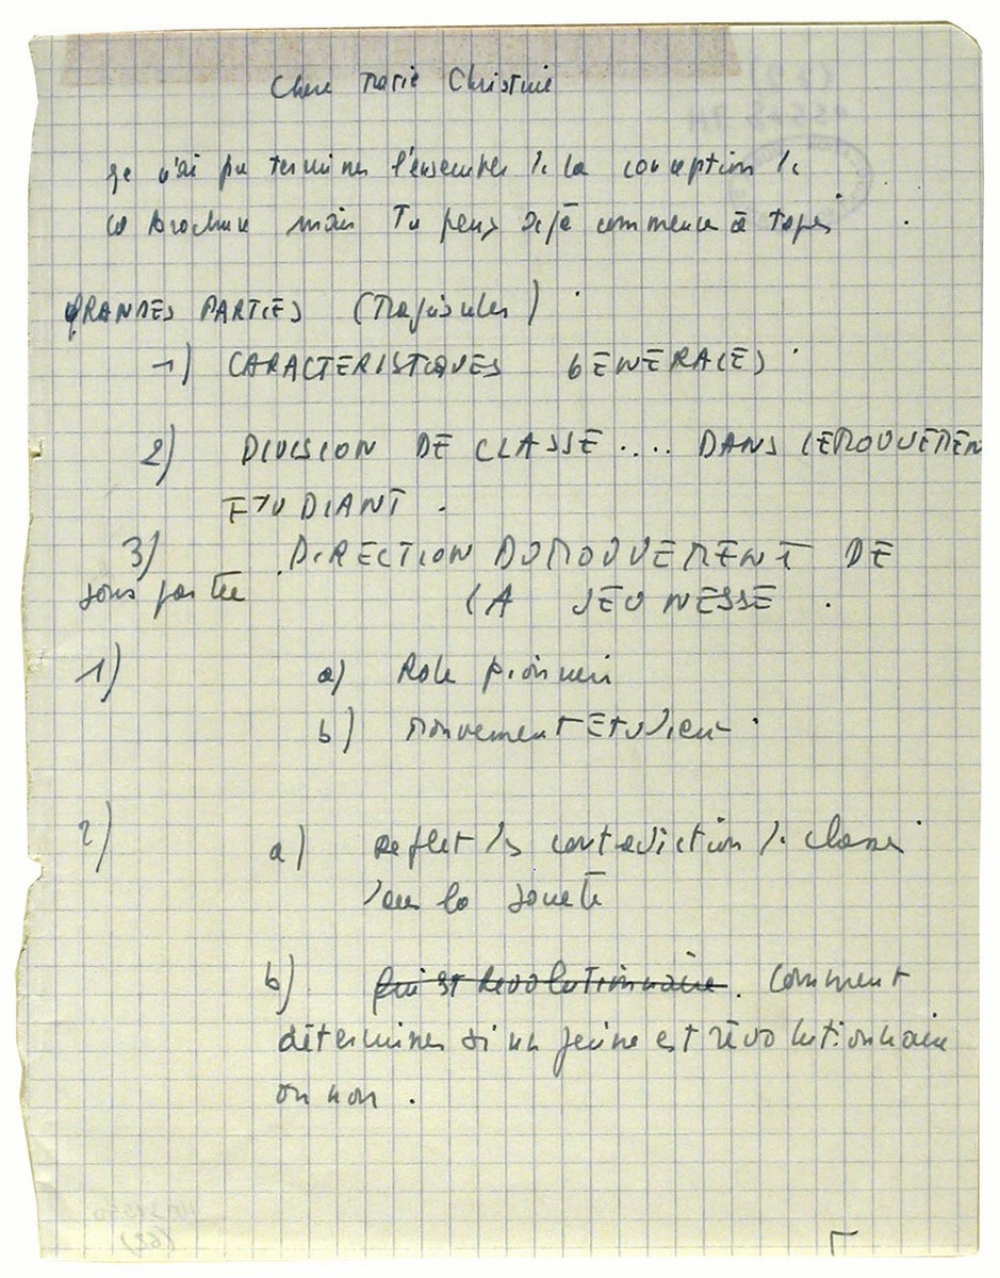 Chere Marie Christine
Je n'ai pu terminer l'ensemble de la conception de
la brochure mais Tu peux dejà commencer à taper
GRANDES PARTIES (Majuscules)
1) CARACTERISTIQUES GENERALES
2) DIVISION DE CLASSE .... DANS LE MOUVEMEN
ETUDIANT.
3) DIRECTION DU MOUVEMENT DE
sous partie LA JEUNESSE.
1) a) Role pionnier
b) Mouvement Etudiant
2) a) Reflet des contradiction de classe
dans la société
b) Qui est Revolutionnaire. Comment
déterminer si un jeune est révolutionnaire
ou non.